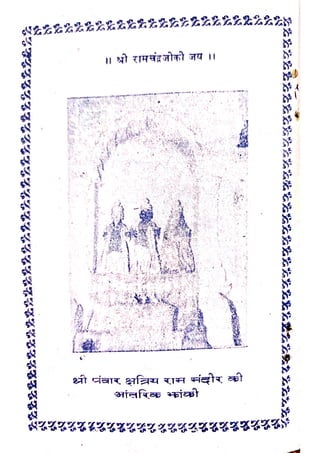 ॥ श्री रामचंद्रजीकी जय ॥
श्री पंवार क्षत्रिय राम मंदीर की
आंतरिक झांकी